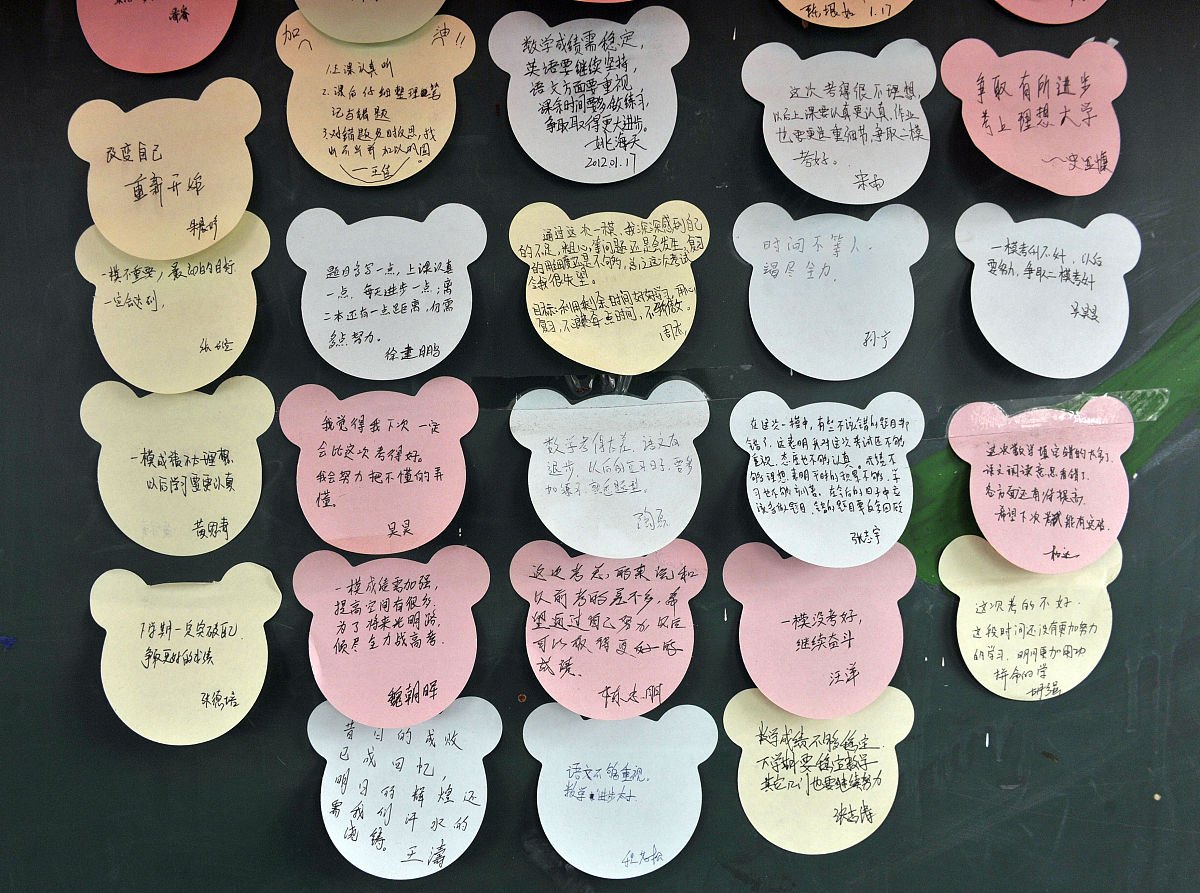 1.17
加油!!
1.上课认真听
2.课后仔细整理笔
记与错题
王佳
数学成绩需稳定,
英语要继续坚持,
语文方面要重视,
课余时间要多做练习,
争取取得更大进步。
姚海天
2012.01.17
这次考得很不理想,
以后上课要认真更认真,作业
也要更注重细节,争取二模
考好。
宋雨
争取有所进步
考上理想大学
改变自己
重新开始
一模不重要,最初的目标
一定会达到,
题目多写一点,上课认真
一点,每天进步一点;离
二本还有一点距离,仍需
多点努力。
徐建鹏
通过这次一模,我深深感到自己
的不足,粗心等问题还是会发生,复习
的用功度还是不够,当然这次考试
令我很失望。
目标:利用剩余时间好好学习,用心
复习,不浪费每一点时间,不骄傲。
周杰
时间不等人,
竭尽全力.
孙宁
一模考得不好,以后
要努力,争取二模考好
吴昊旻
一模成绩不太理想,
以后学习要更认真
黄思奇
我觉得我下次一定
会比这次考得好。
我会努力把不懂的弄
懂。
吴昊
数学考得太差,语文有
退步,以后的复习日子,要多
加练习,熟悉题型。
在这次一模中,有些不该错的题目都
错了,这表明我对这次考试还不够
重视,态度也不够认真。成绩不
够理想,表明平时的积累不够,学
习也不够刻苦。在今后的日子中应
该多做题目,错的题目要自学回顾
张志宇
这次数学填空错的太多了,
语文阅读意思看错了.
各方面还有待提高.
希望下次考试能有突破.
下学期一定突破自己,
争取更好的成绩
张德培
一模成绩需加强,
提高空间有很多,
为了将来光明路,
倾尽全力战高考.
魏朝晖
这次考差,的来说和
以前考的差不多,希
望通过自己努力以后
可以取得更好一些
成绩.
陈志鹏
一模没考好,
继续奋斗
汪洋
这次考的不好.
这段时间还没有更加努力
的学习,明明更加用功
拼命的学
胡强
昔日的成败
已成回忆,
明日的辉煌还
需我们汗水的
浇铸。
王涛
语文不够重视。
数学进步太小
数学成绩不够稳定.
下学期要稳定数学
其它几门也要继续努力
张吉涛